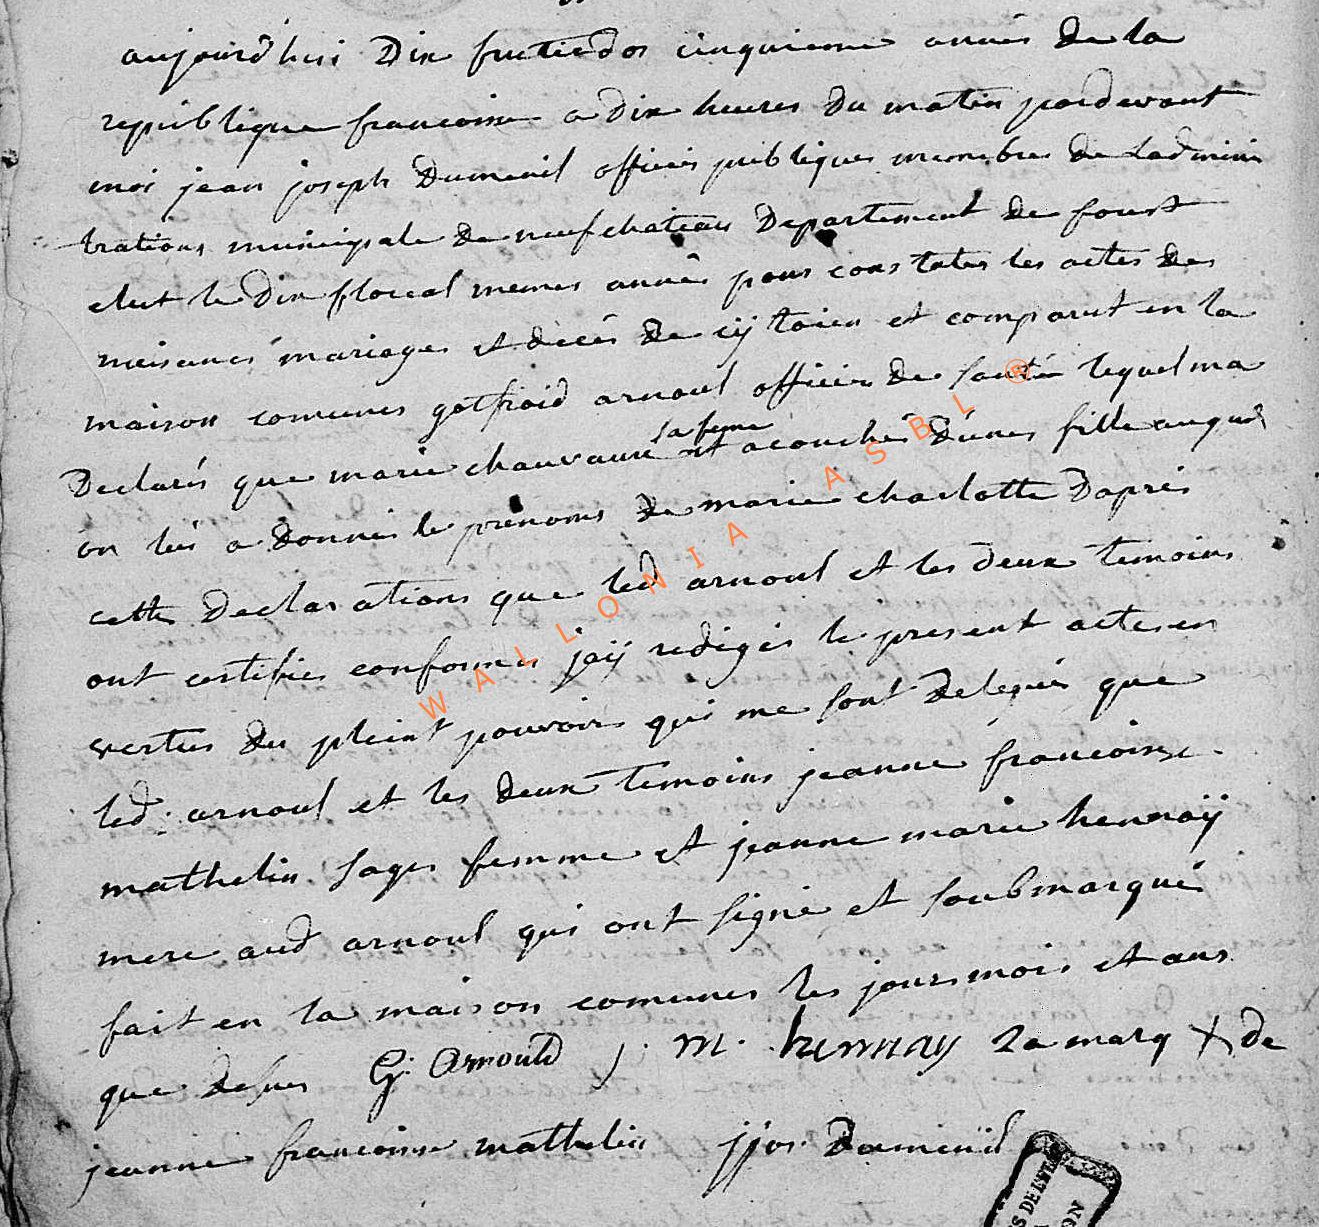 aujourd'hui Dix fructidor cinquieme année de la
republique francoise a dix heures du matin pardevant
moi jean joseph Dumenil officier publique membre de Ladminis
trations municipale de neufchateau Departement de foret
elut le Dix floreal meme année pour constater les actes des
naisance mariages et decés de citoien et comparut en la
maison comunes gotfroid arnoul officier de santé lequel ma
Declarés que marie chauvaux sa feme est acouché d'unes fille auquel
on lui a donnés le prenoms de marie charlotte Daprés
cette Declarations que led arnoul et les deux temoins
ont certifies conformes jaÿ redigés le present actes en
vertus du pleint pouvoir qui me sont delegués que
led. arnoul et les deux temoins jeanne francoise
mathelin sages femme et jeanne marie hennaÿ
mere aud arnoul qui ont signé et soubmarqué
fait en la maison comunes les jours mois et ans
que desus G: Arnould j. m. hennay La marq X de
jeanne francoise mathelin jjos. Dumenil
WALLONIA ASBL ®